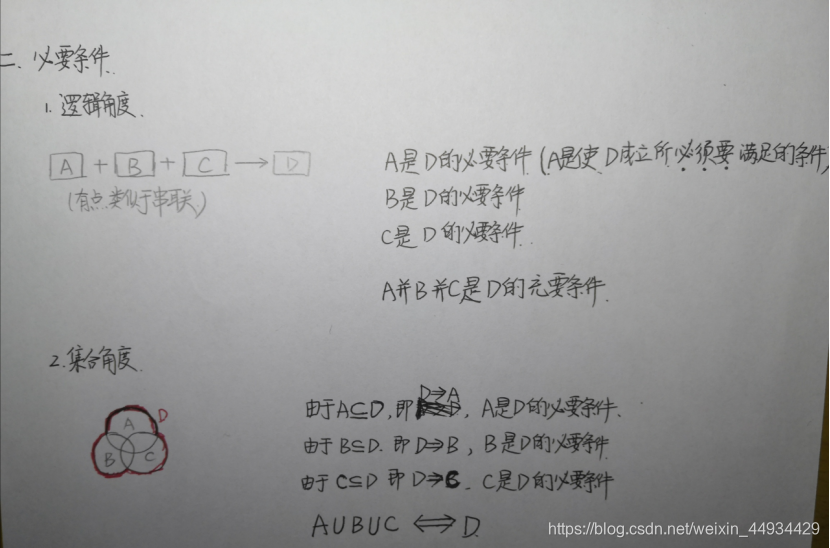 二、必要条件.
1. 逻辑角度.
A + B + C → D
(有点类似于串联)
A是D的必要条件(A是使D成立所必须要满足的条件)
B是D的必要条件
C是D的必要条件.
A并B并C是D的充要条件.
2. 集合角度.
A
B
C
D
由于A⊆D, 即D⇒A, A是D的必要条件.
由于B⊆D. 即D⇒B, B是D的必要条件
由于C⊆D 即D⇒C. C是D的必要条件
A∪B∪C ⟺ D.
https://blog.csdn.net/weixin_44934429